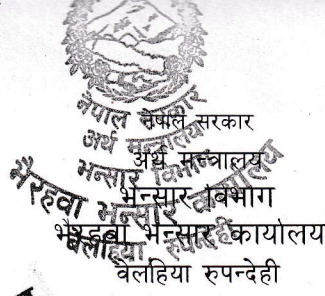 नेपाल सरकार
अर्थ मन्त्रालय
भन्सार विभाग
भैरहवा भन्सार कार्यालय
वेलहिया रुपन्देही
नेपाल सरकार
अर्थ मन्त्रालय
भन्सार विभाग
भैरहवा भन्सार कार्यालय
वेलहिया रुपन्देही